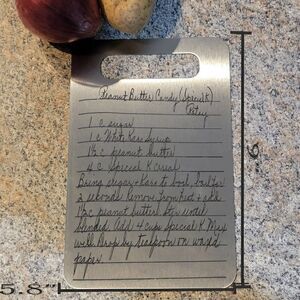 Peanut Butter Candy (Special K)
Patsy
1 c sugar
1 c White Karo Syrup
1½ c peanut butter
4 c Special K Cereal
Bring sugar + Karo to boil, boil for
2 seconds. Remove from heat + add
1½ c peanut butter. Stir until
blended. Add 4 cups Special K. Mix
well. Drop by teaspoon on waxed
paper.
9"
5.8"